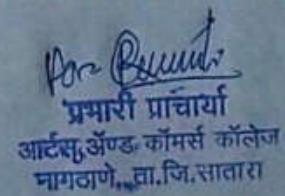 For
प्रभारी प्राचार्या
आर्टस् ॲण्ड कॉमर्स कॉलेज
नागठाणे, ता.जि.सातारा